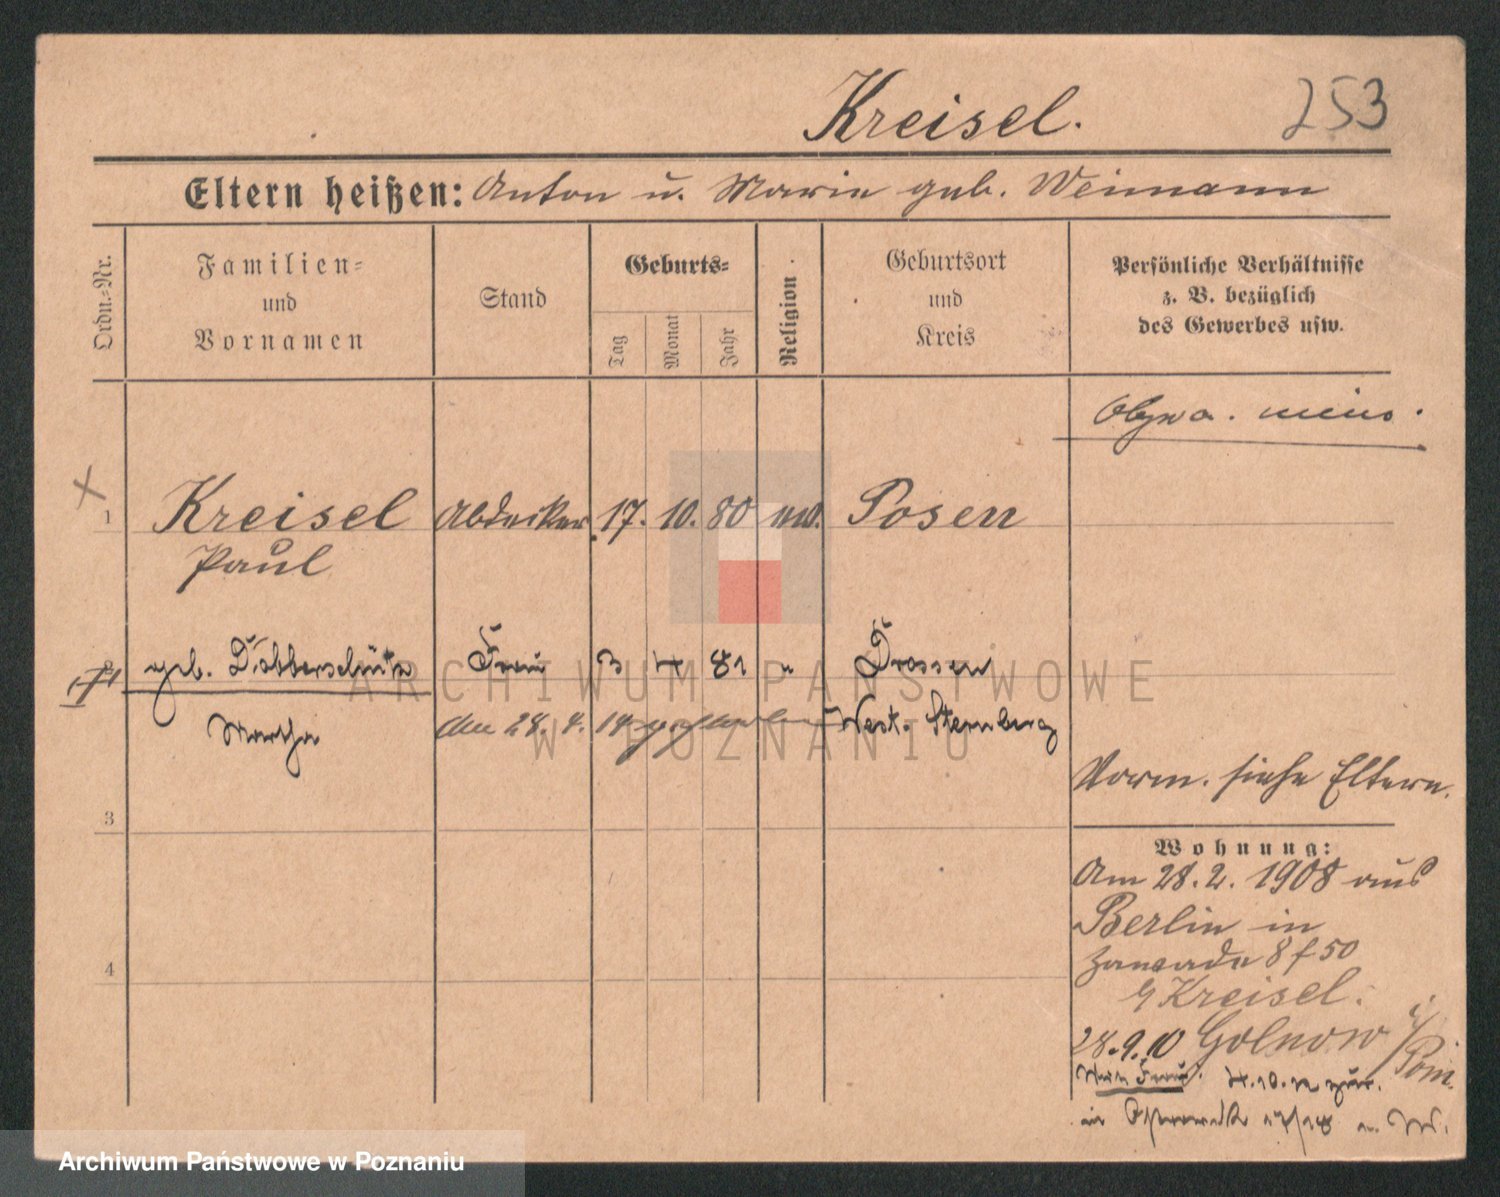 Kreisel.
253
Eltern heißen: Anton u. Marie geb. Weimann
Ordn.-Nr.
Familien-
und
Vornamen
Stand
Geburts-
Tag
Monat
Jahr
Religion
Geburtsort
und
Kreis
Persönliche Verhältnisse
z. B. bezüglich
des Gewerbes usw.
1 Kreisel Abdecker 17. 10. 80 Posen
Paul
geb. Dobberschütz Frau 3 4 81 " Drossen
Martha
am 28. 4. 14 gestorben
West. Sternberg
Vorm. siehe Eltern.
3
Wohnung:
Am 28. 2. 1908 aus
Berlin in
Zawade 8 f 50
b/ Kreisel.
28.9.10 Golnow i/
Pom.
4
Frau 4.10.
in 17/18 W.
ARCHIWUM PAŃSTWOWE
W POZNANIU
Archiwum Państwowe w Poznaniu